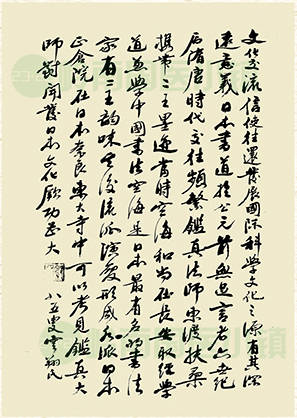 文化交流信使往還發展國際科學文化之源有其深
遠意義日本書道於公元前無足言者六世紀
后隋唐時代交往頻繁鑑真法師東渡扶桑
携帶二王墨迹當時空海和尚在長安取經學
道並與中國書法空海是日本最有名的書法
家有二王韵味其後流派演變形成和派日本
正倉院在日本奈良東大寺中可以考見鑑真大
師對開發日本文化厥功至大
八五叟